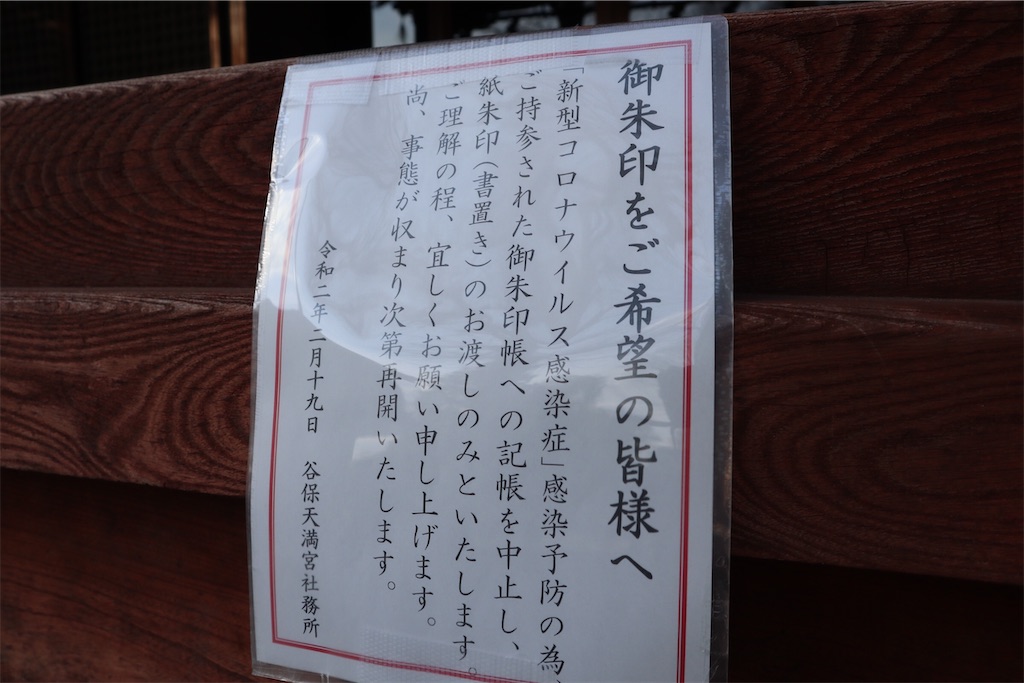 御朱印をご希望の皆様へ
「新型コロナウイルス感染症」感染予防の為、
ご持参された御朱印帳への記帳を中止し、
紙朱印(書置き)のお渡しのみといたします。
ご理解の程、宜しくお願い申し上げます。
尚、事態が収まり次第再開いたします。
令和二年二月十九日 谷保天満宮社務所